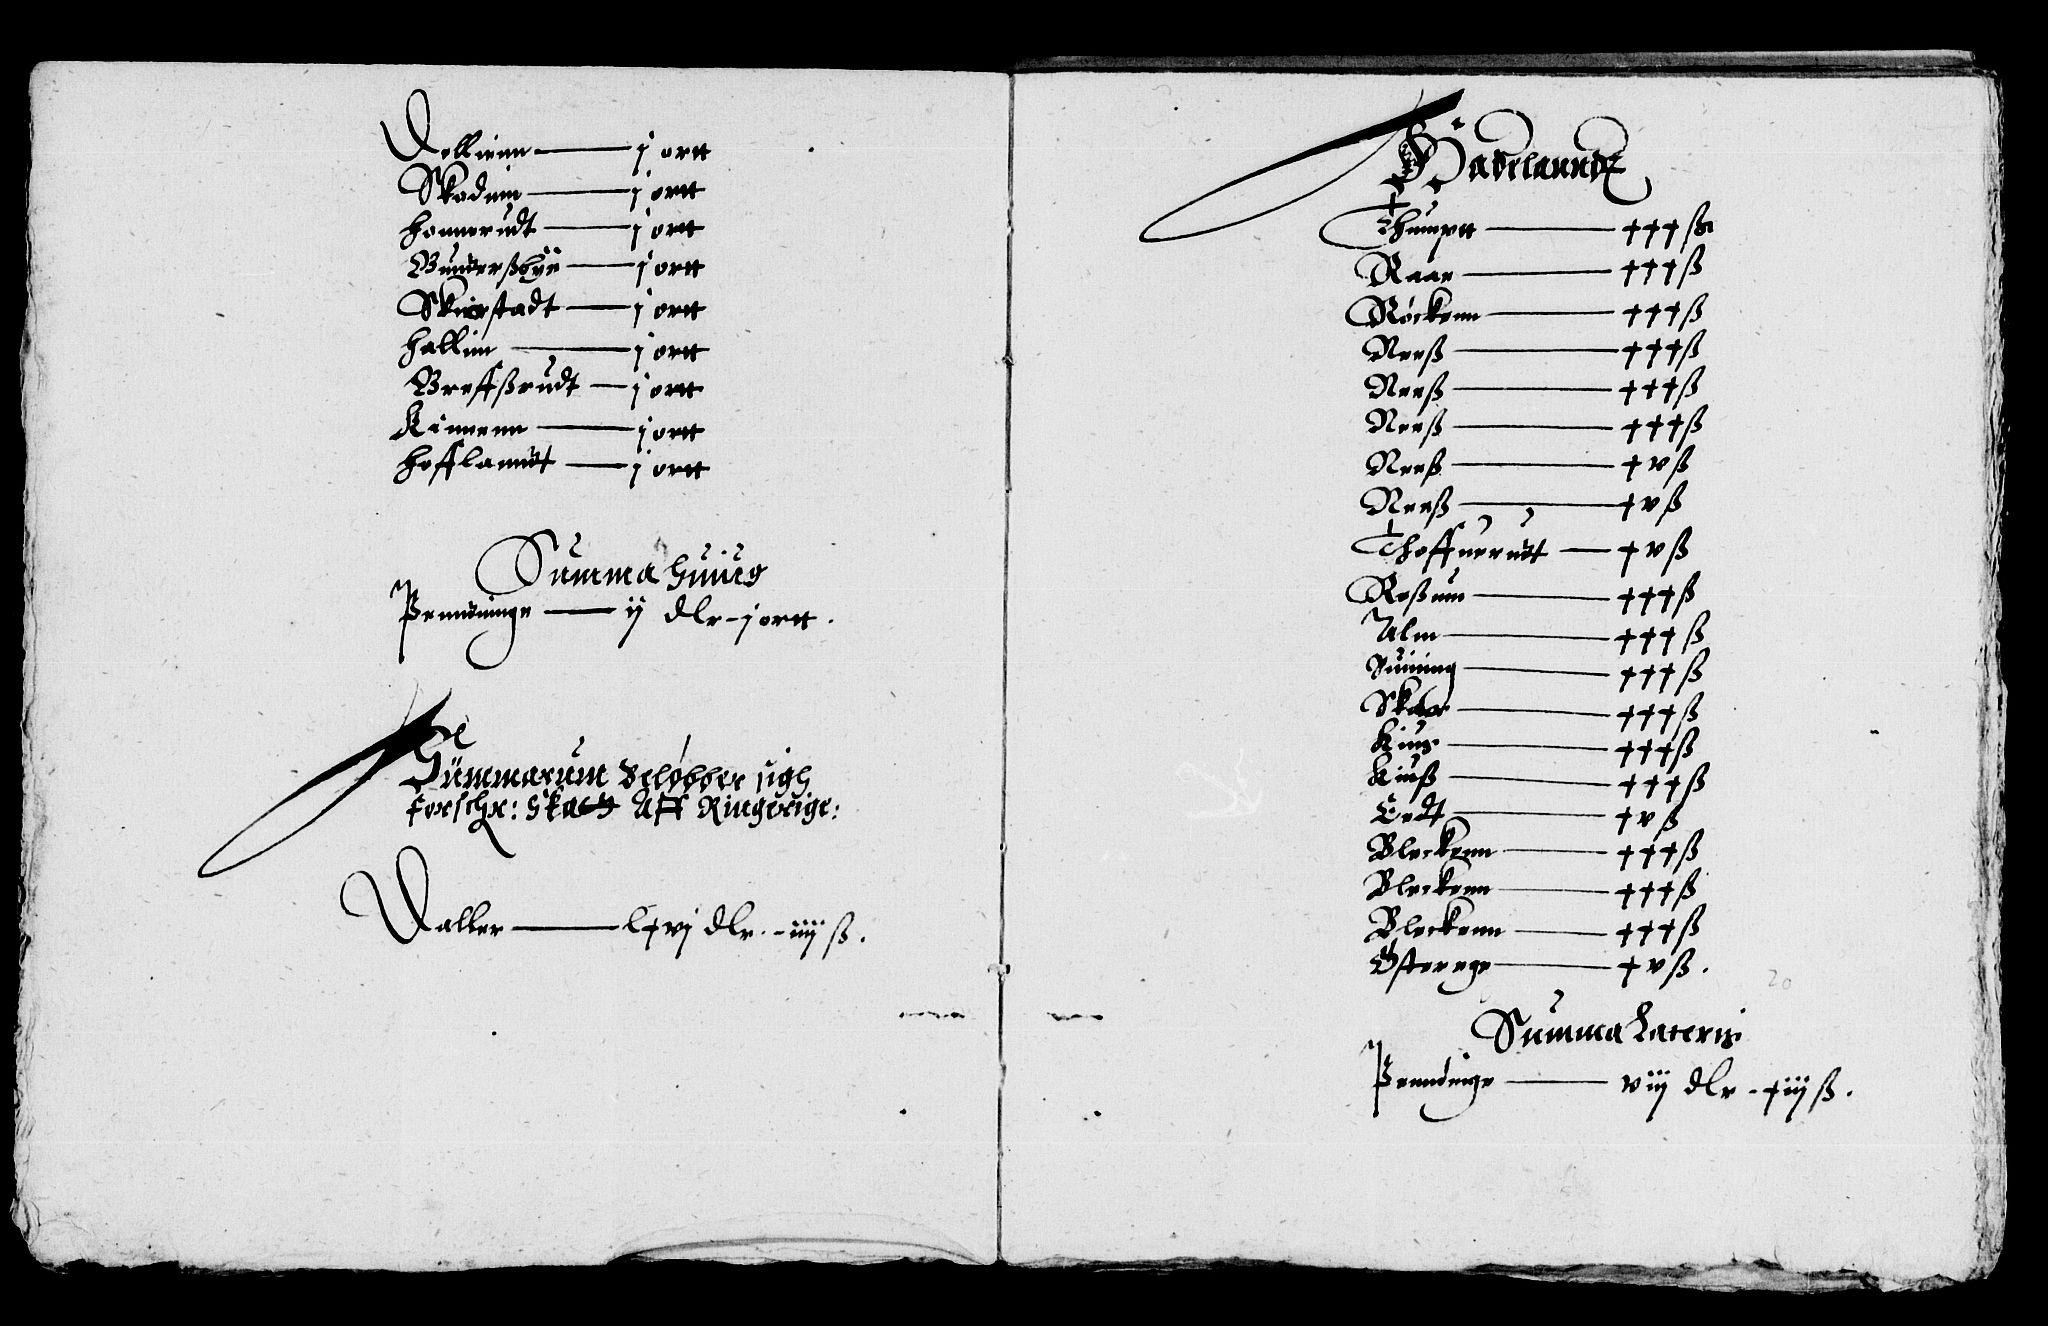 Vellienn — j ortt
Skadum — j ortt
Honnerudt — j ortt
Bundersßbye — j ortt
Skierstadt — j ortt
Hallim — j ortt
Breffßrudt — j ortt
Kinnenn — j ortt
Hofflanndt — j ortt
Summa huius
Penndinge — ij dlr - j ortt.
Summarum Beløbber sigh
forschr: Skatt Aff Ringerige:
Daller — lxvj dlr. - iiij ß.
Hadelanndt
Thumptt — xxx ß
Raae — xxx ß
Røckenn — xxx ß
Neeß — xxx ß
Neeß — xxx ß
Neeß — xxx ß
Neeß — xv ß
Neeß — xv ß
Thoffnerudt — xv ß
Roßum — xxx ß
Alm — xxx ß
Bining — xxx ß
Skaar — xxx ß
xxx ß
Kiuß — xxx ß
Eedt — xv ß
Bleckenn — xxx ß
Bleckenn — xxx ß
Bleckenn — xxx ß
Østerege — xv ß.
20
Summa Lateris
Penndinge — viij dlr - xiij ß.